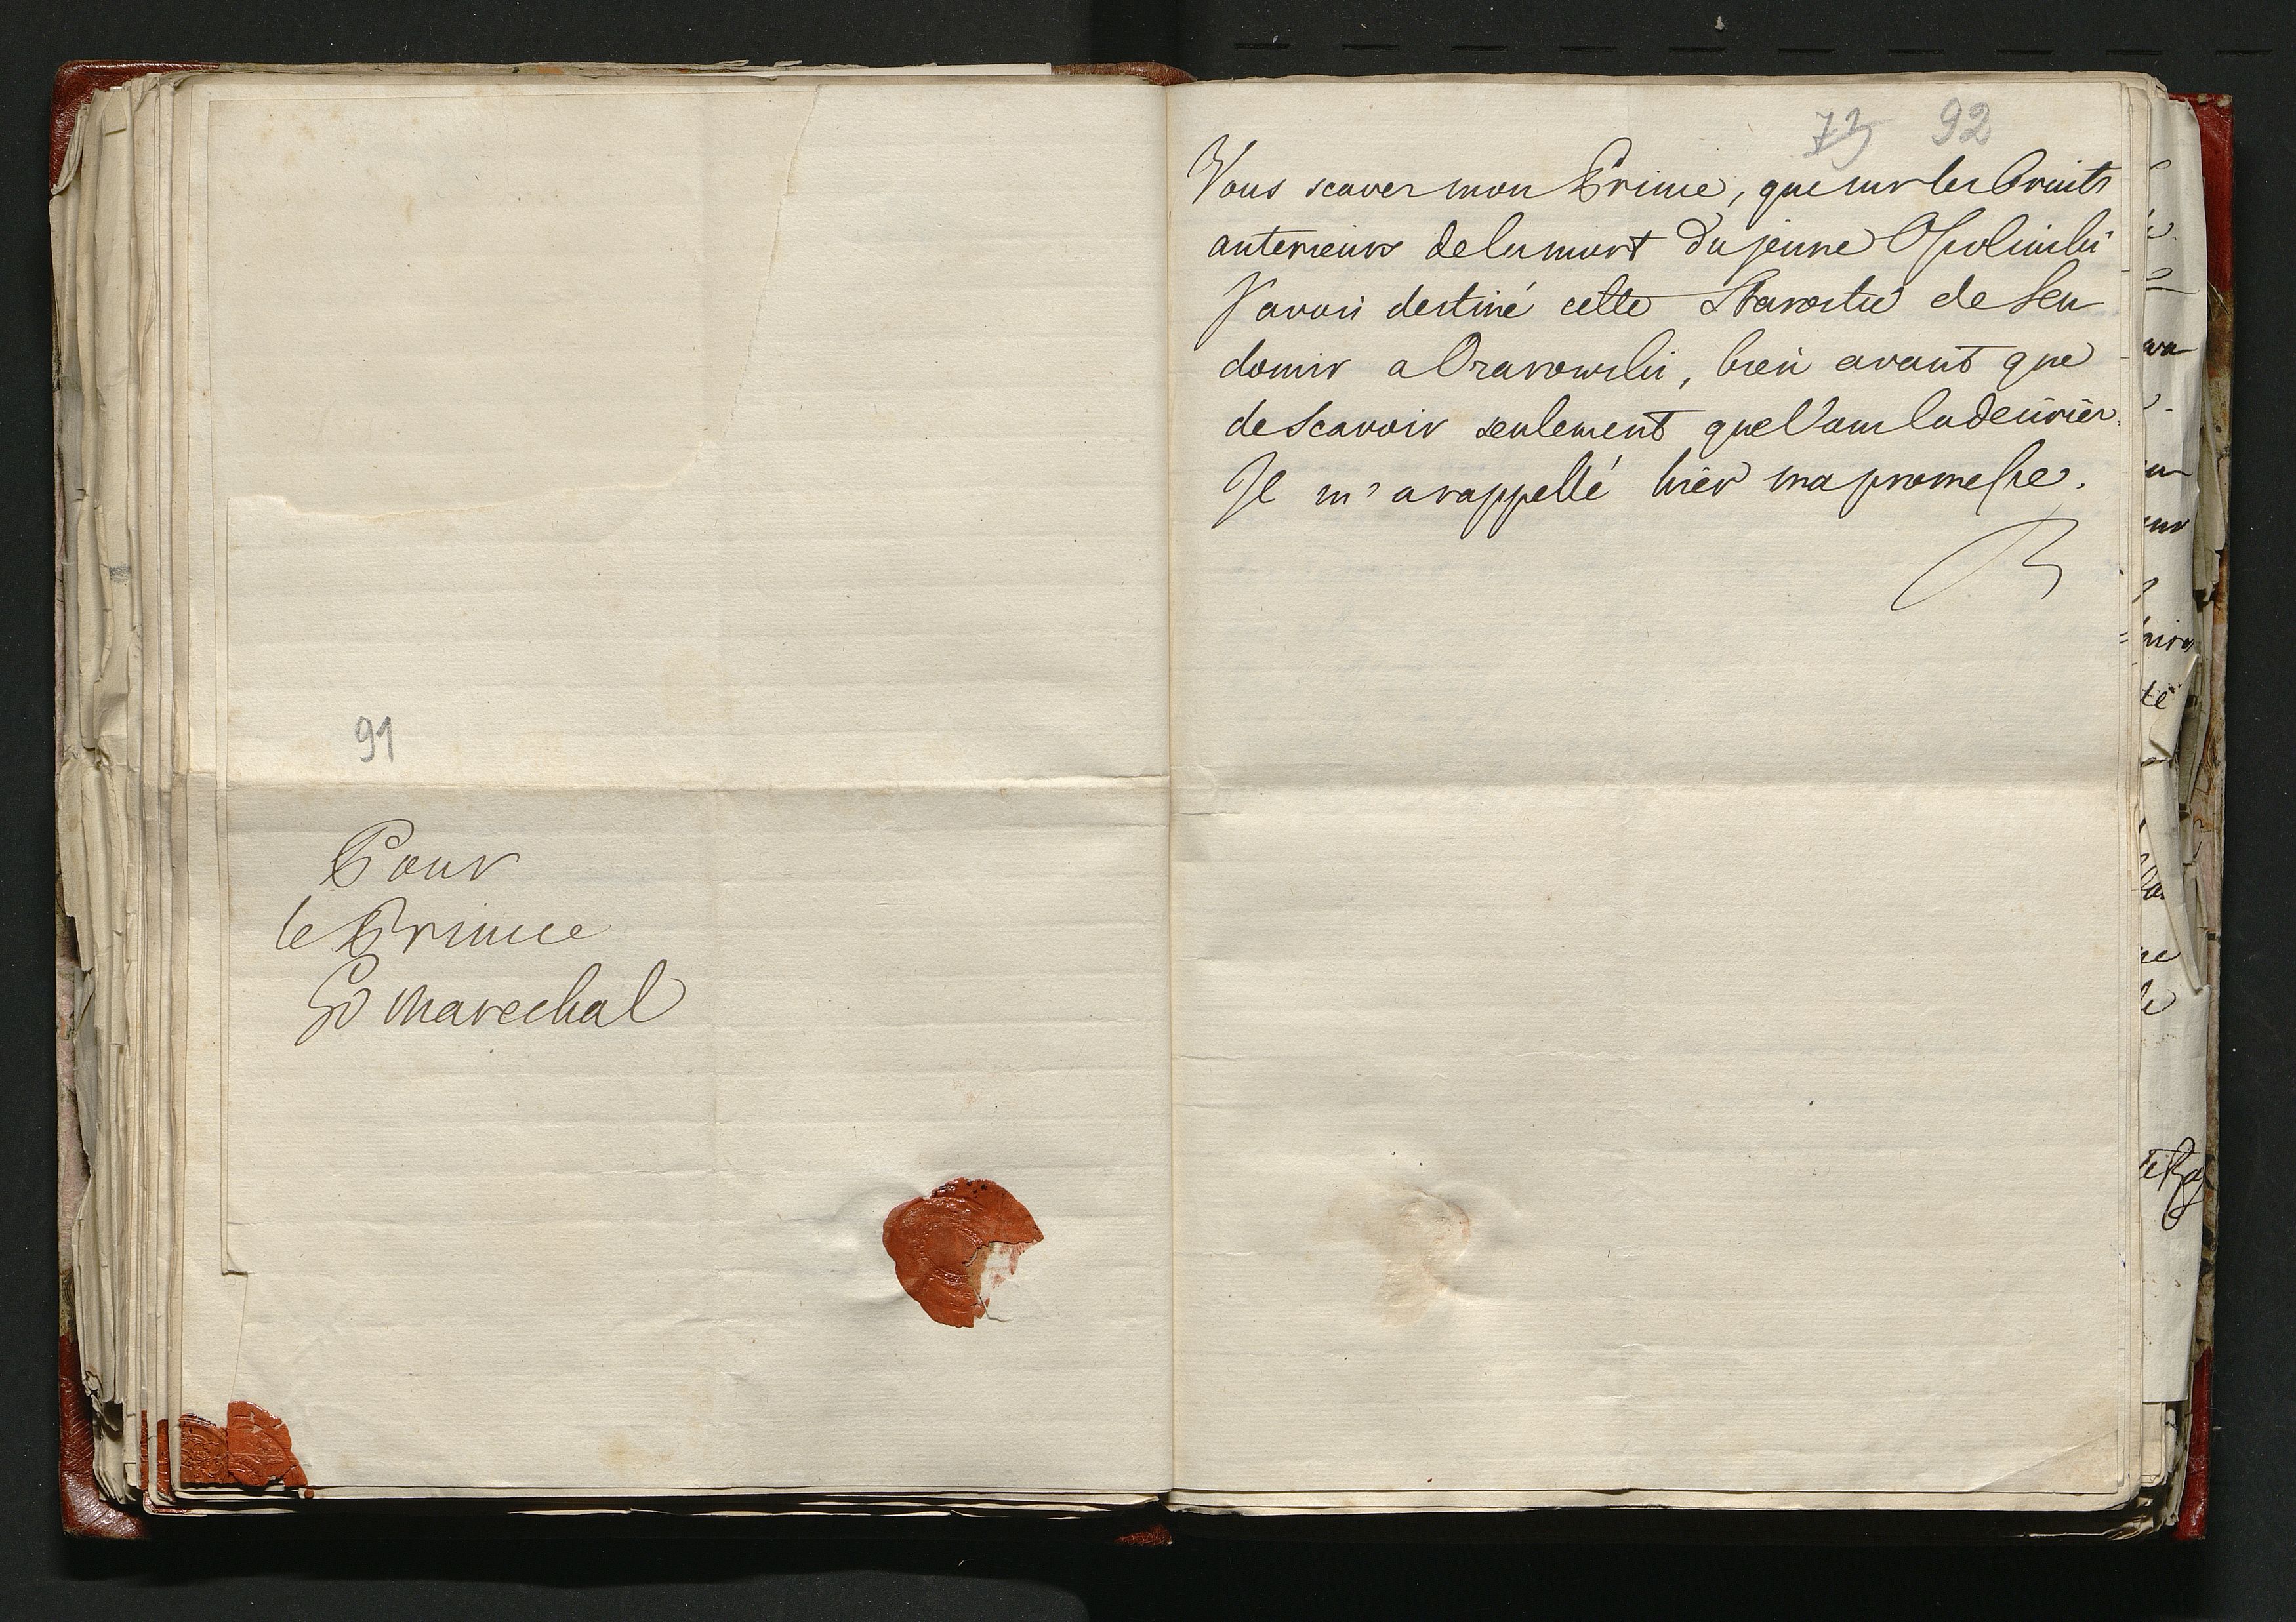 91
Pour
le Prince
Gd Marechal
73 92
Vous scavez mon Prince, que sur les bruits
anterieurs de la mort du jeune Opolinski
J'avois destiné cette Starostie de Sen
domir a Ozarowski, bien avant que
de scavoir seulement que Vous la desiriez.
Il m'a rappellé hier ma promesse.